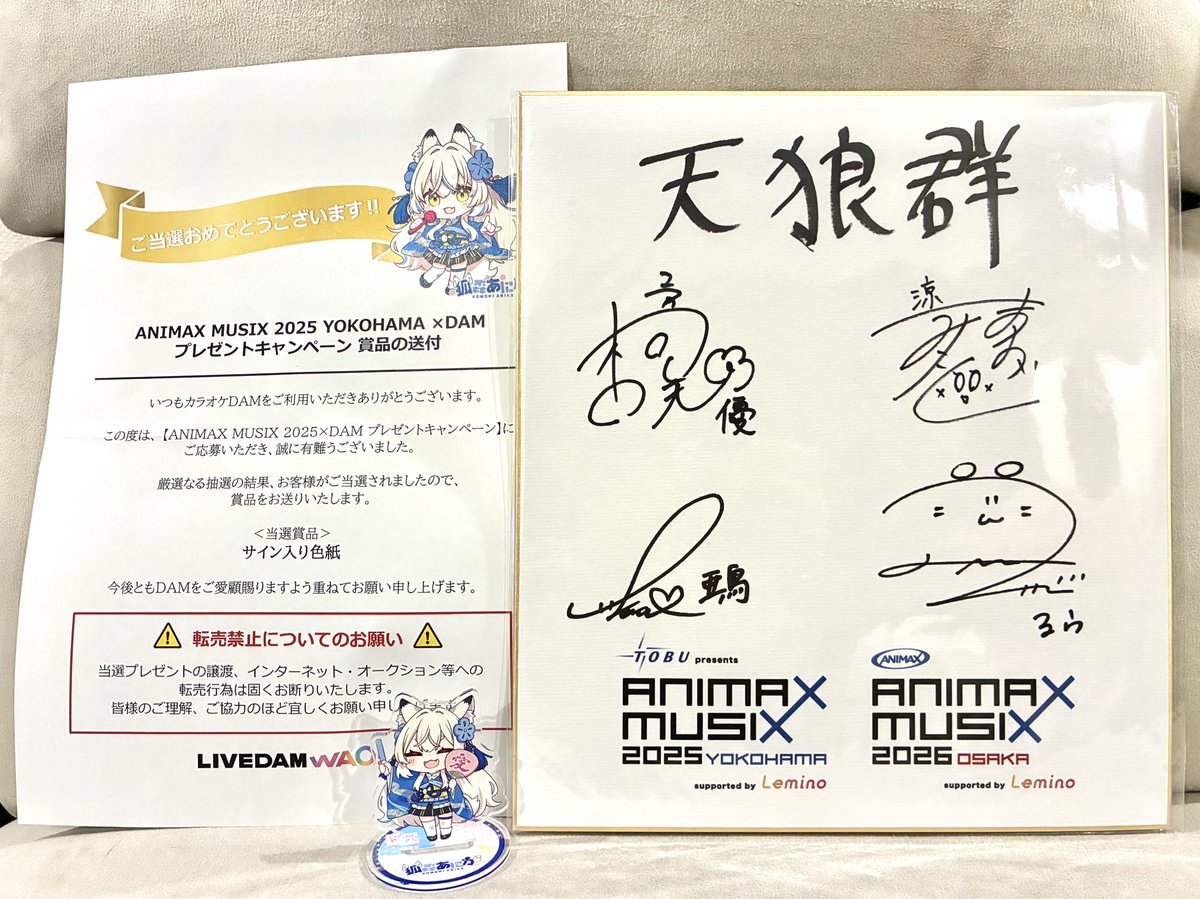 ご当選おめでとうございます!!
狐森あにろ
KOMORI ANIRO
ANIMAX MUSIX 2025 YOKOHAMA ×DAM
プレゼントキャンペーン 賞品の送付
いつもカラオケDAMをご利用いただきありがとうございます。
この度は、【ANIMAX MUSIX 2025×DAM プレゼントキャンペーン】に
ご応募いただき、誠に有難うございました。
厳選なる抽選の結果、お客様がご当選されましたので、
賞品をお送りいたします。
<当選賞品>
サイン入り色紙
今後ともDAMをご愛顧賜りますよう重ねてお願い申し上げます。
転売禁止についてのお願い
当選プレゼントの譲渡、インターネット・オークション等への
転売行為は固くお断りいたします。
皆様のご理解、ご協力のほど宜しくお願い申し
LIVEDAM WAO
愛
狐森あにろ
KOMORI ANIRO
天狼群
優
涼
亜鳥
るう
TOBU presents
ANIMAX
MUSIX
2025 YOKOHAMA
supported by Lemino
ANIMAX
ANIMAX
MUSIX
2026 OSAKA
supported by Lemino